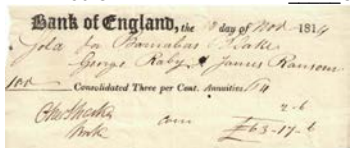 Bank of England, the day of Nov 1814
Sold for Barnabas Blake
George Raby & James Ransom
100 Consolidated Three per Cent. Annuities 64
2-6
com £63-17-6